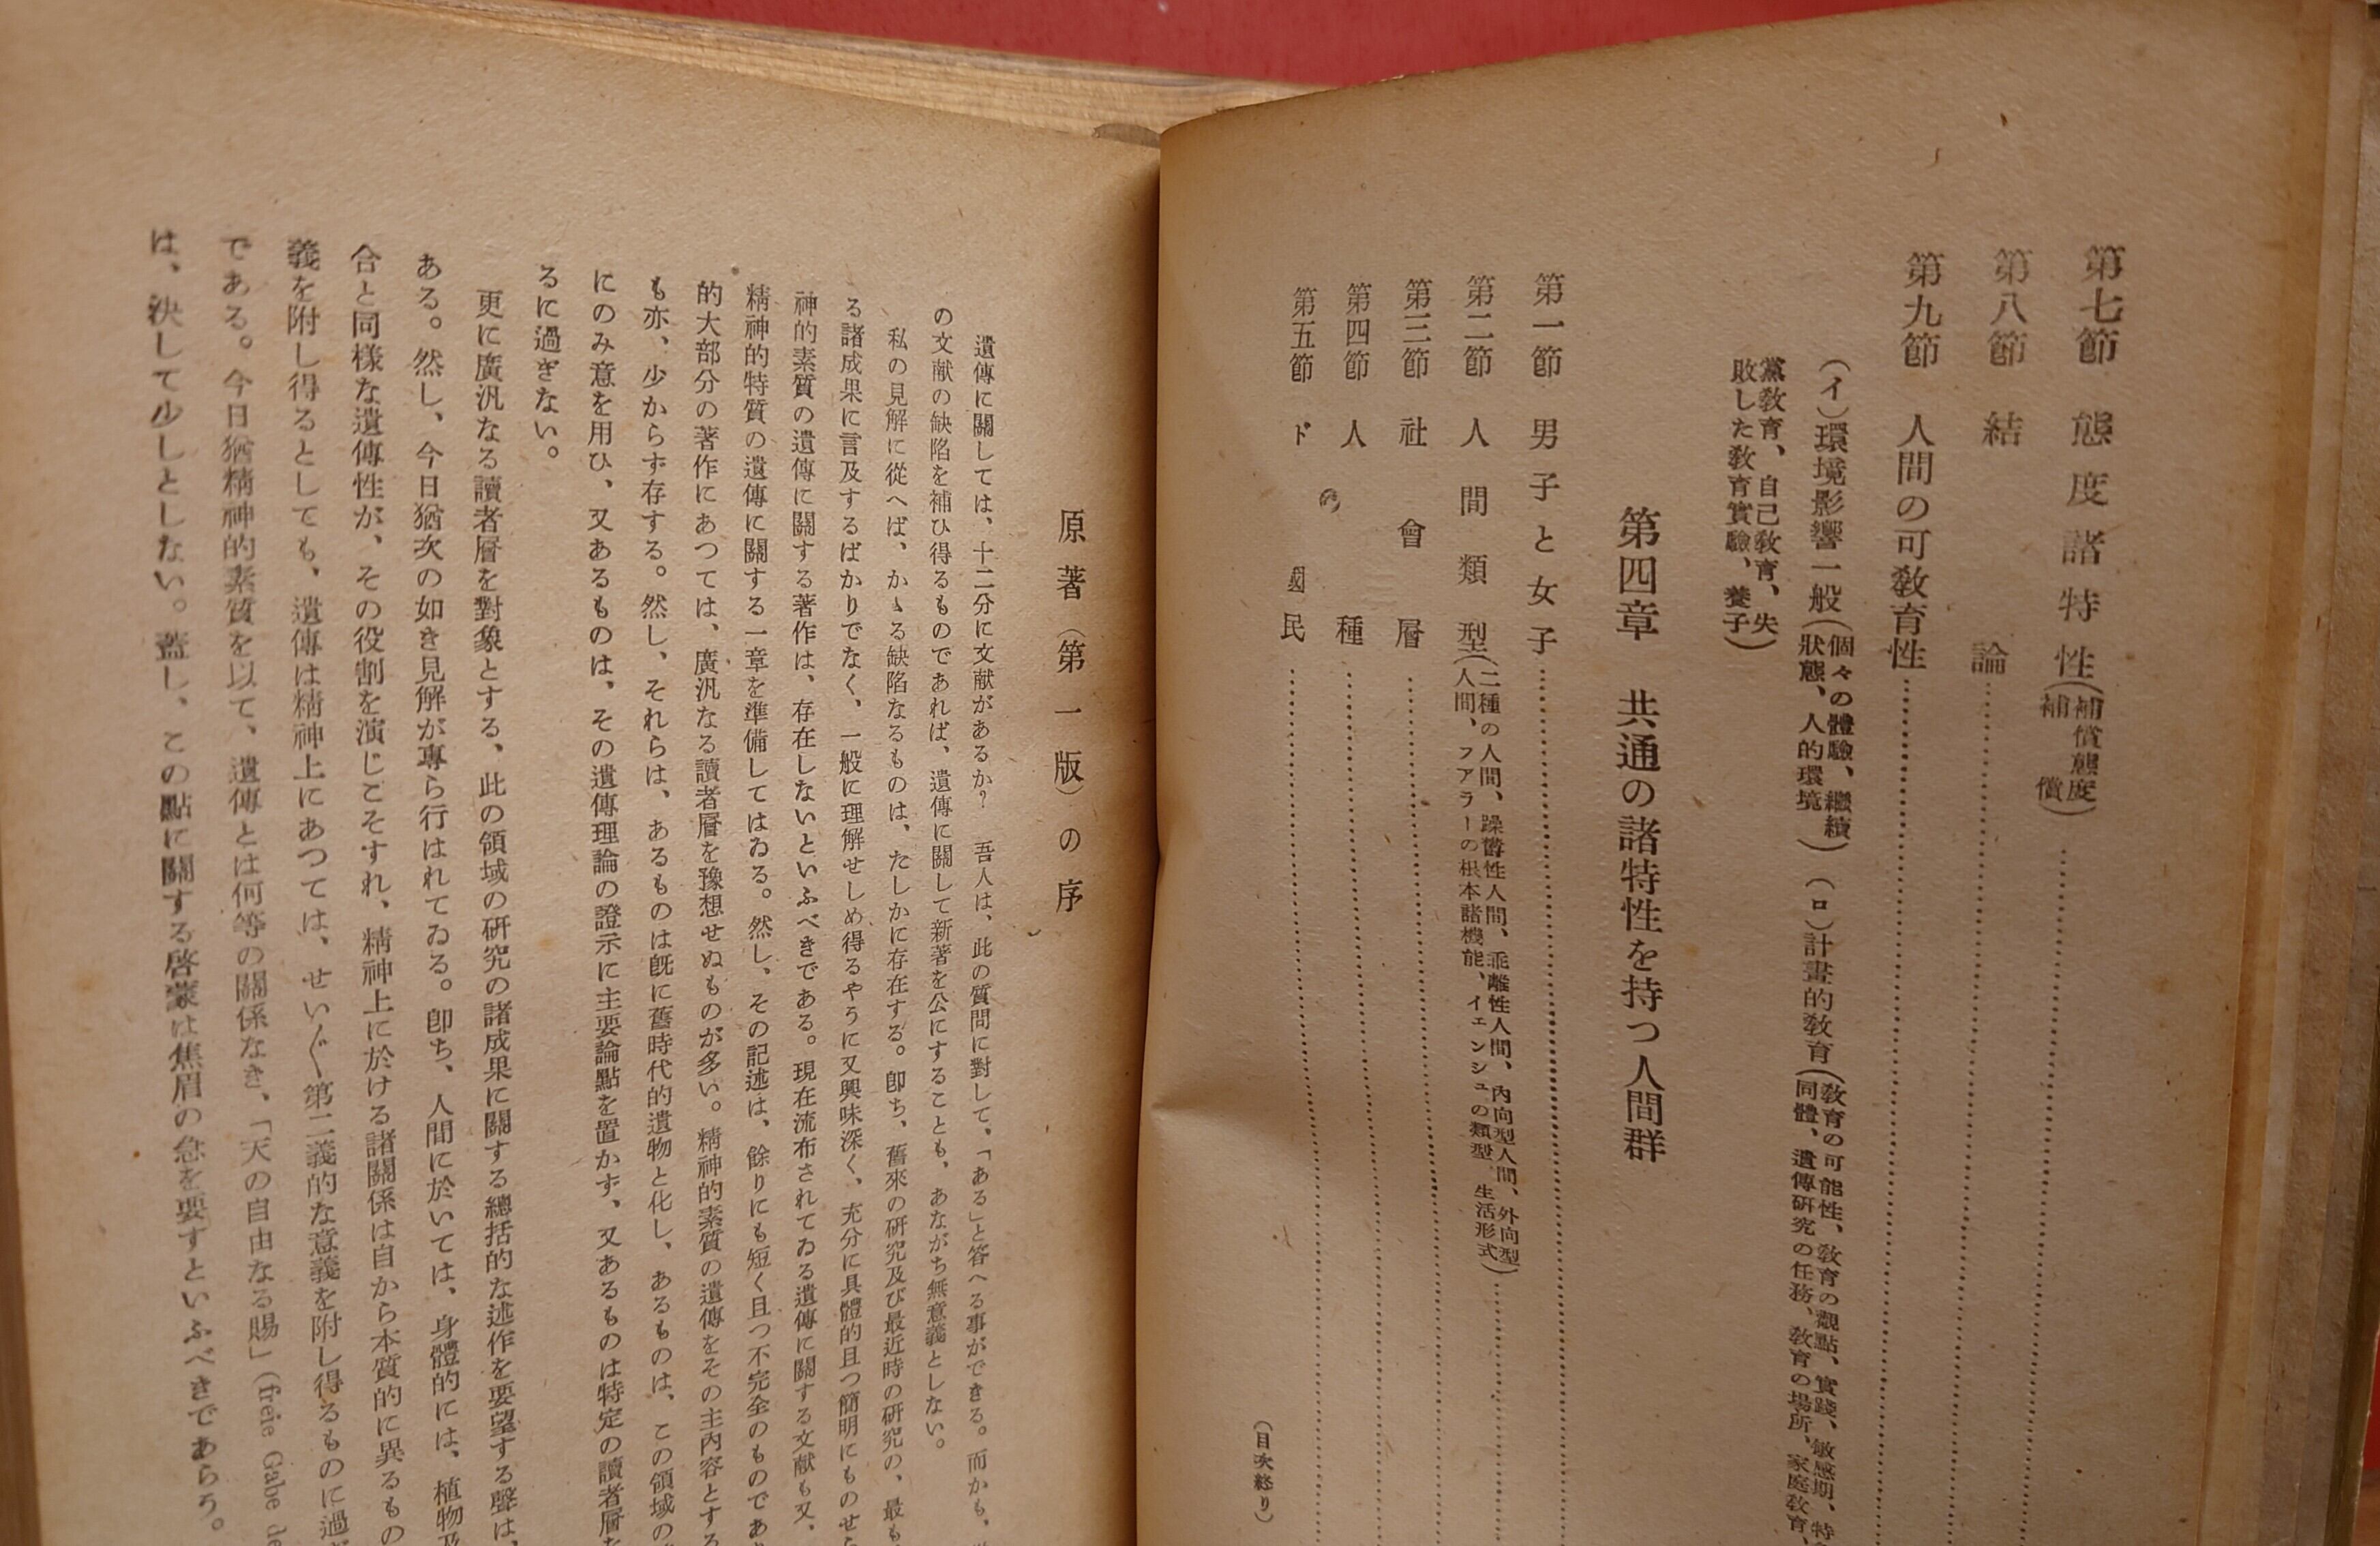 第七節 態度諸特性(補償態度 補償)
第八節 結論
第九節 人間の可教育性
(イ)環境影響一般(個々の體驗、繼續狀態、人的環境) (ロ)計畫的教育(教育の可能性、教育の觀點、實踐、敏感期、特
同體、遺傳研究の任務、教育の場所、家庭教育、
黨教育、自己教育、失
敗した教育實驗、養子)
第四章 共通の諸特性を持つ人間群
第一節 男子と女子
第二節 人間類型(二種の人間、躁鬱性人間、乖離性人間、內向型人間、外向型
人間、フアラーの根本諸機能、イェンシュの類型、生活形式)
第三節 社會層
第四節 人種
第五節 ドの國民
(目次終り)
原著(第一版)の序
遺傳に關しては、十二分に文献があるか? 吾人は、此の質問に對して、「ある」と答へる事ができる。而かも、
の文献の缺陷を補ひ得るものであれば、遺傳に關して新著を公にすることも、あながち無意義としない。
私の見解に從へば、かゝる缺陷なるものは、たしかに存在する。卽ち、舊來の研究及び最近時の研究の、最も
る諸成果に言及するばかりでなく、一般に理解せしめ得るやうに又興味深く、充分に具體的且つ簡明にものせら
神的素質の遺傳に關する著作は、存在しないといふべきである。現在流布されてゐる遺傳に關する文献も又、
精神的特質の遺傳に關する一章を準備してはゐる。然し、その記述は、餘りにも短く且つ不完全のものであ
的大部分の著作にあつては、廣汎なる讀者層を豫想せぬものが多い。精神的素質の遺傳をその主內容とする
も亦、少からず存する。然し、それらは、あるものは旣に舊時代的遺物と化し、あるものは、この領域の
にのみ意を用ひ、又あるものは、その遺傳理論の證示に主要論點を置かず、又あるものは特定の讀者層を
るに過ぎない。
更に廣汎なる讀者層を對象とする、此の領域の研究の諸成果に關する總括的な述作を要望する聲は、
ある。然し、今日猶次の如き見解が專ら行はれてゐる。卽ち、人間に於いては、身體的には、植物及
合と同樣な遺傳性が、その役割を演じこそすれ、精神上に於ける諸關係は自から本質的に異るもの
義を附し得るとしても、遺傳は精神上にあつては、せいぐ〵第二義的な意義を附し得るものに過
である。今日猶精神的素質を以て、遺傳とは何等の關係なき、「天の自由なる賜」(freie Gabe de
は、決して少しとしない。蓋し、この點に關する啓蒙は焦眉の急を要すといふべきであらう。